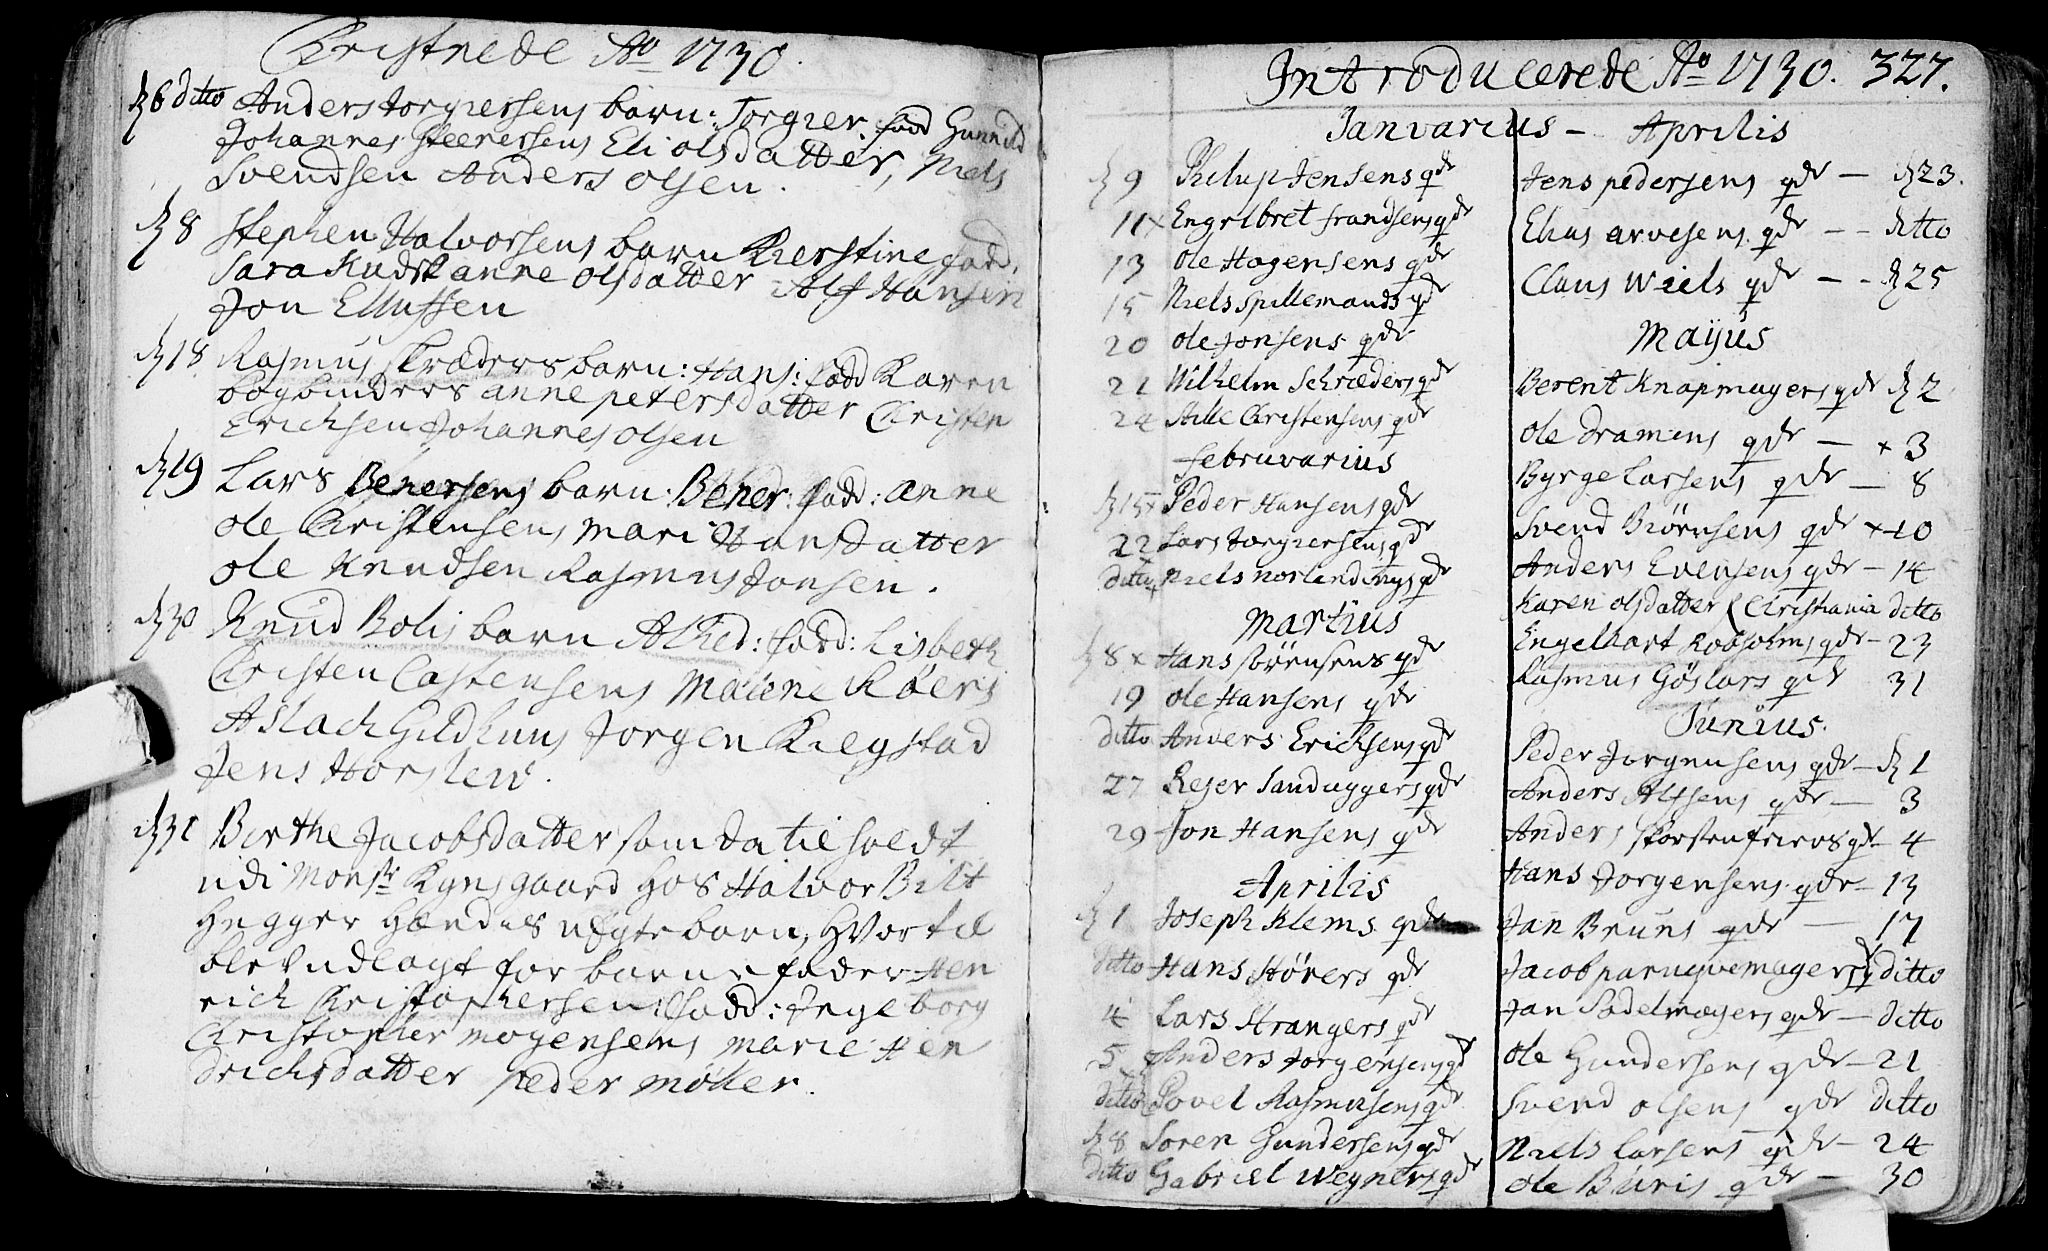 Christnede Ao 1730.
d 6 ditto Anders Jorgiersens barn: Jorgier. fadd Gunnild
Johannes Steenersens Eli olsdatter, Niels
Svendsen Anders olsen.
d 8 Stephen Halvorsens barn Kierstine fadd.
Sara Kudsk anne olsdatter Alf Hansen
Jon Ellufsen
d 18 Rasmus skræders barn: Hans: fadd Karen
bogbinders anne petersdatter Christen
Erichsen Johannes olsen
d 19 Lars Benersens barn: Bener: fadd: anne
ole Christensens mari Hansdatter
ole Knudsen Rasmus Jonsen.
d 30 Knud Bolis barn Alhed: fadd: Lisbeth
Christen Castensens Malene Røers
Aslach Gildhuus Jorgen Kiegstad
Jens Horslew.
d 31 Birthe Jacobsdatter som da tilholdt
udi Monsr Kynsgaard hos Halvor Bilt
hugger hændes uEgte barn, Hvortil
blev udlagt for barne fader Hen
rich Christophersen fadd: Ingeborg
Christopher mogensens marie Hen
drichsdatter peder møller.
Introducerede Ao 1730. 327.
Janvarius - Aprilis
d 9 Philup Jensens qdr
11 x Engelbret frandsens qdr
13 ole Hagensens qdr
15 Niels spillemands qdr
20 ole Jonsens qdr
21 Wilhelm Schræders qdr
24 Atlle Christensens qdr
Februvarius
d 15 x Peder Hansens qdr
22 Lars Jorgiersens qdr
ditto x Niels norlendings qdr
Martius
d 8 x Hans sörensens qdr
19 ole Hansens qdr
ditto Anders Erichsens qdr
27 Rejer Sanduggers qdr
29 Jon Hansens qdr
Aprilis
d 1 Joseph Klems qdr
ditto Hans Hövers qdr
4 Lars Strangers qdr
5 Anders Jorgensens qdr
ditto Povel Rasmusens qdr
d 8 Soren Gundersens qdr
ditto Gabriel Wegners qdr
Jens pedersens qdr — d 23.
Elias arvesens qdr - - ditto
Claus Wiels qdr - - d 25
Mayus
Berent Knapmagers qdr d 2
ole dramens qdr — x 3
Byrge Larsens qdr — 8
Svend Biörnsens qdr x 10
Anders Evensens qdr - 14
Karen olsdatter / Christiania ditto
Engelhart Robsolms qdr - 23
Rasmus Göslars qdr 31
Junius.
Peder Jorgensens qdr - d 1
Anders Alfsens qdr — 3
Anders skorstenfeiers qdr 4
Hans Jorgensens qdr - 13
Jan Bruns qdr — 17
Jacob paruqvemagers qdr ditto
Jan Sadelmagers qdr — ditto
ole Gundersens qdr — 21
Svend olsens qdr ditto
Niels Larsens qdr - 24
ole Buris qdr — 30